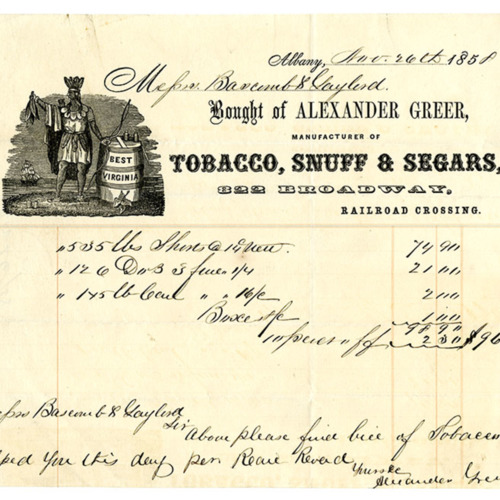 Albany, Nov. 26th 1858
Messrs. Bascomb & Gaylord.
Bought of ALEXANDER GREER,
MANUFACTURER OF
TOBACCO, SNUFF & SEGARS,
822 BROADWAY,
RAILROAD CROSSING.
BEST
VIRGINIA
" 535 lbs Shorts @ 14 74 90
" 126 Do 3 1/4 21 00
" 1 " " 16/c 2 00
Boxes 1 00
98 90
" off 2 30 $96
Bascomb & Gaylord
Sir Above please find bill of Tobacco
ped You this day per Road
Yours &c
Alexander Gre